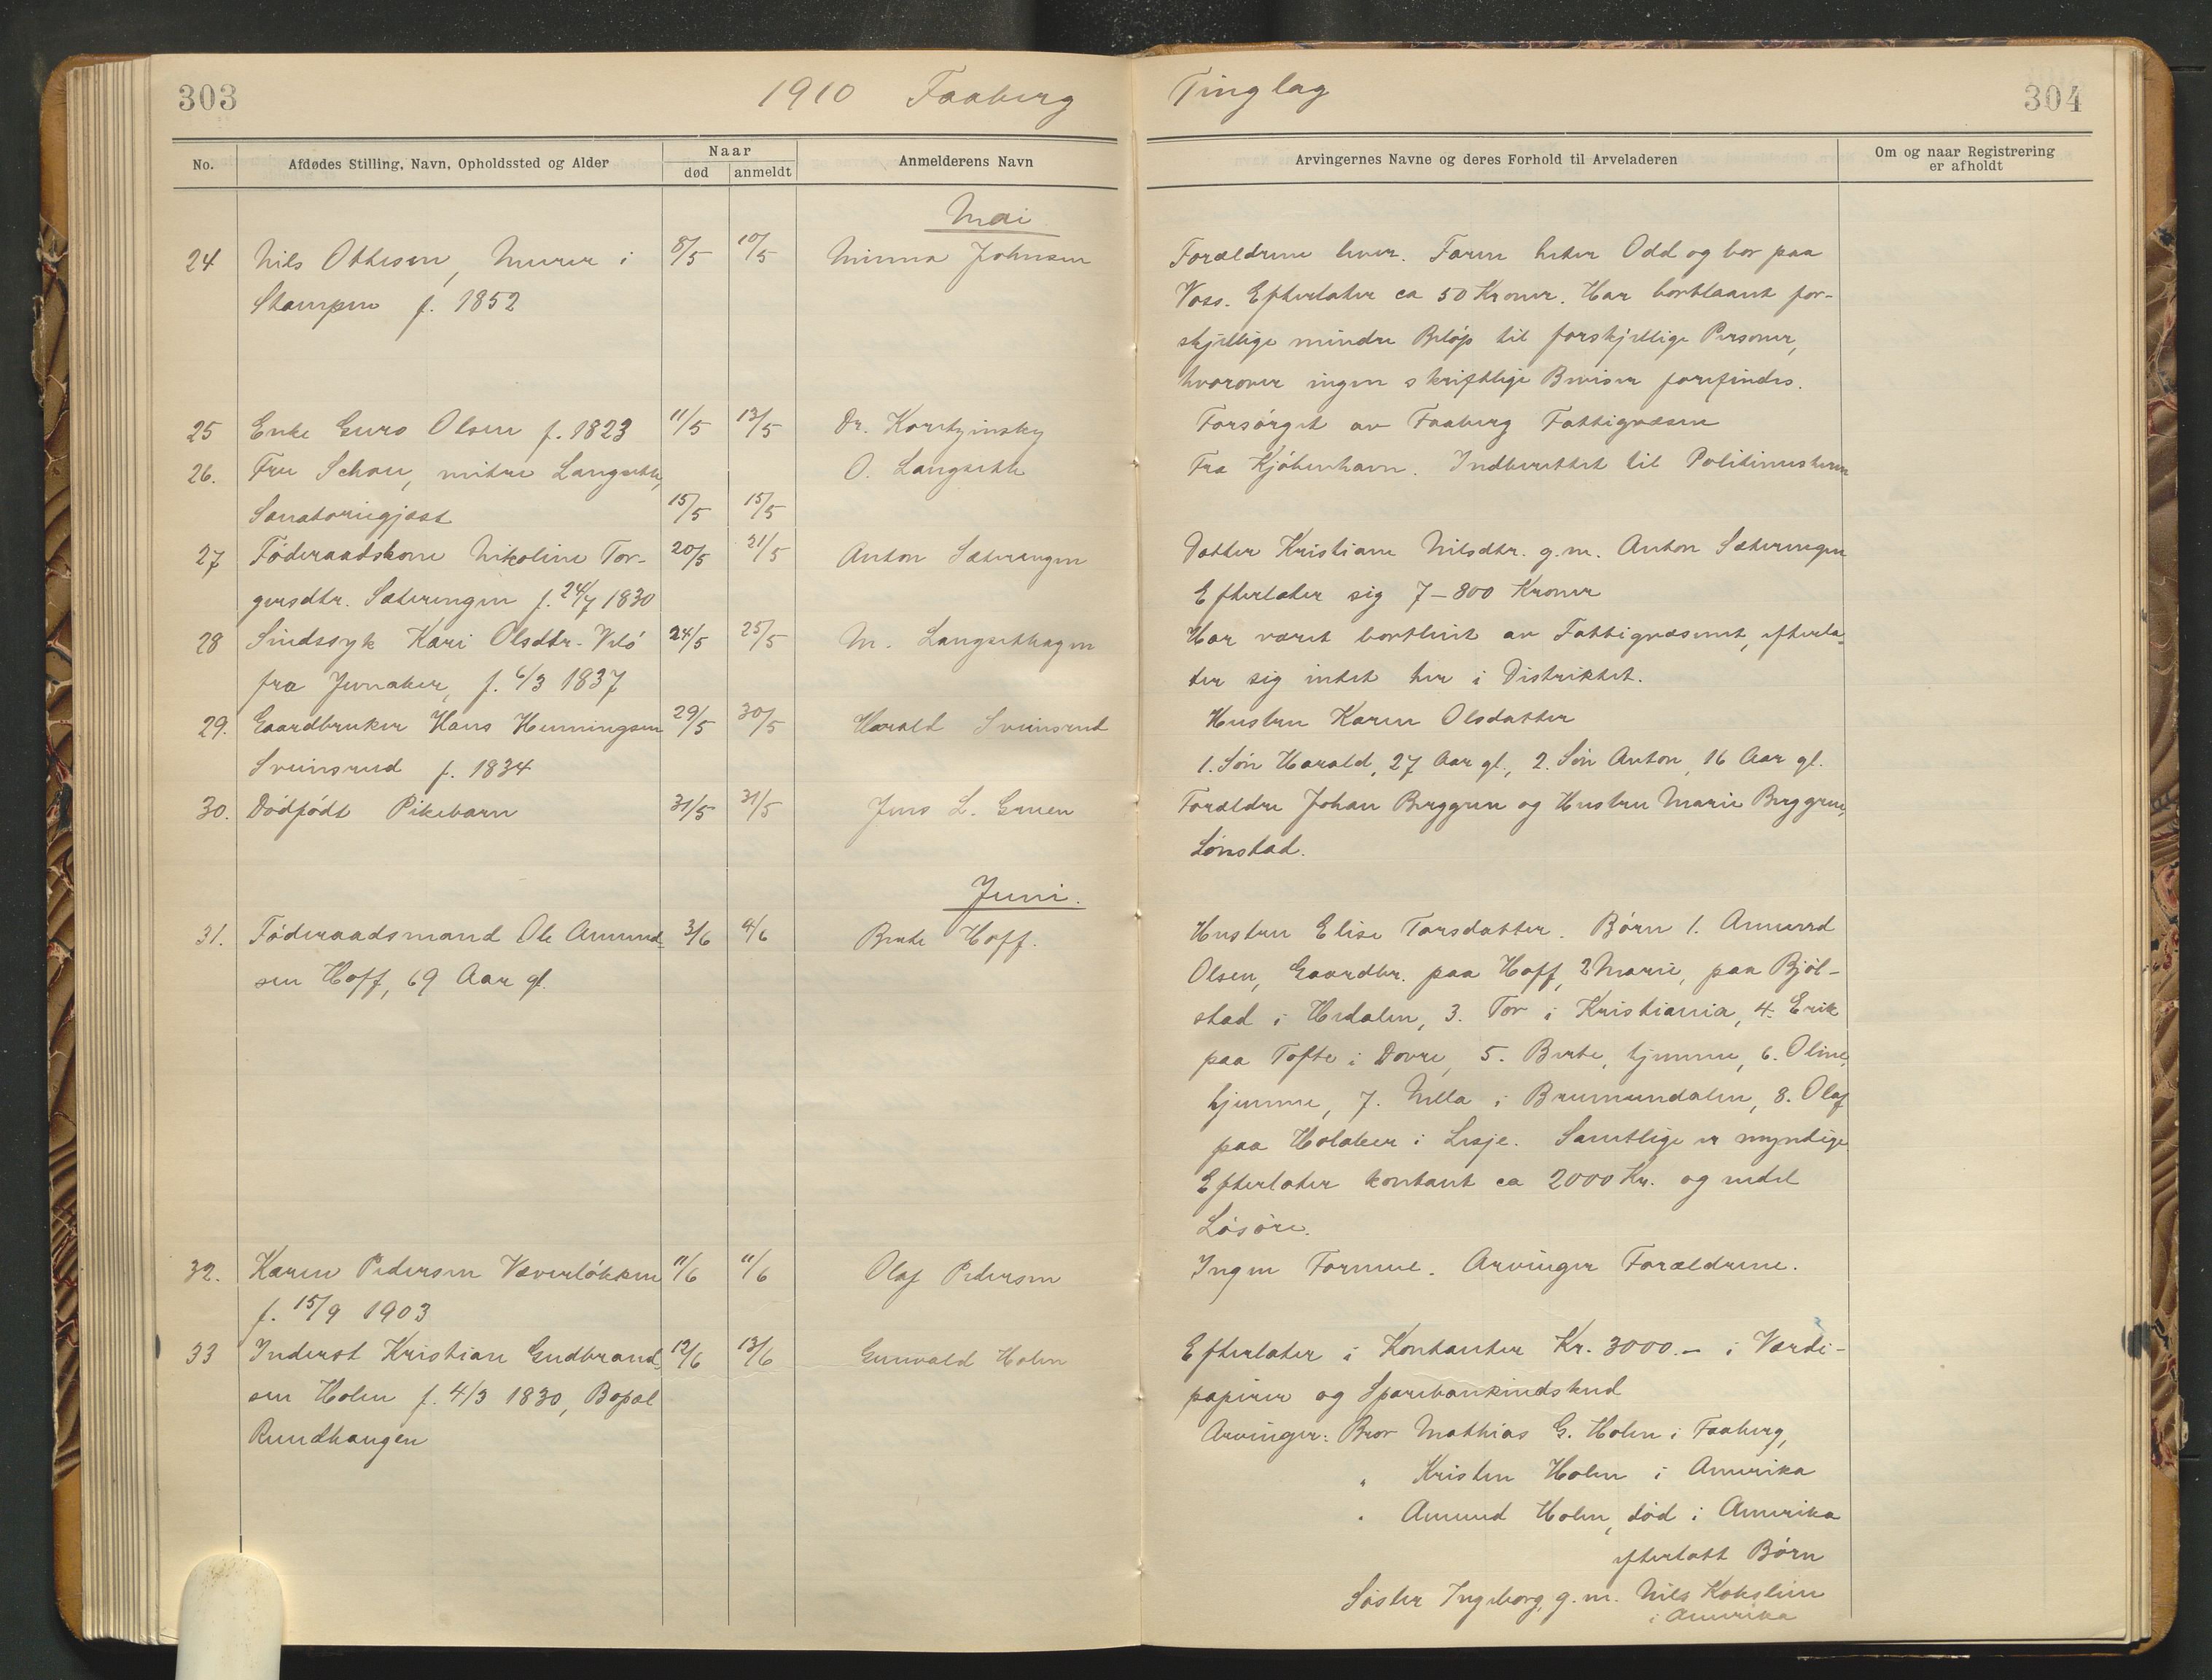 303
1910 Faaberg
Tinglag
304
No.
Afdødes Stilling, Navn, Opholdssted og Alder
Naar
død
anmeldt
Anmelderens Navn
Arvingernes Navne og deres Forhold til Arveladeren
Om og naar Registrering
er afholdt
Mai
24 Nils Ottesen, Murer i 8/5 10/5 Minna Johnsen Forældrene lever. Faren heter Odd og bor paa
Stampen f. 1852 Voss. Efterlater ca 50 Kroner. Har bortlaant for-
skjellige mindre Beløp til forskjellige Personer,
hvorover ingen skriftlige Beviser forefindes.
25 Enke Guro Olsen f. 1823 11/5 13/5 Dr. Koritzinsky Forsørget av Faaberg Fattigvæsen
26. Fru Schou, nitre Langseth, O. Langseth Fra Kjøbenhavn. Indberettet til Politimesteren
Sanatoriegjæst 15/5 15/5
27 Føderaadskone Nikoline Tor- 20/5 21/5 Anton Sæterengen Datter Kristiane Nilsdtr. g.m. Anton Sæterengen
gersdtr. Sæterengen f. 24/7 1830 Efterlater sig 7-800 Kroner
28 Sindssyk Kari Olsdtr. Velø 24/5 25/5 M. Langsethagen Har været bortleiet av Fattigvæsenet, efterla-
fra Jevnaker, f. 6/3 1837 ter sig intet her i Distriktet.
29. Gaardbruker Hans Henningsen 29/5 30/5 Harald Sveinsrud Hustru Karen Olsdatter
Sveinsrud f. 1834 1. Søn Harald, 27 Aar gl., 2. Søn Anton, 16 Aar gl.
30. Dødfødt Pikebarn 31/5 31/5 Jens L. Gruen Forældre Johan Berggren og Hustru Marie Berggren,
Lønstad.
Juni.
31. Føderaadsmand Ole Amund- 3/6 4/6 Berte Hoff. Hustru Elise Torsdatter. Børn 1. Amund
sen Hoff, 69 Aar gl. Olsen, Gaardbr. paa Hoff, 2 Marie, paa Bjøl-
stad i Hedalen, 3. Tor i Kristiania, 4. Erik
paa Tofte i Dovre, 5. Berte, hjemme, 6. Oline,
hjemme, 7. Nella i Brumundalen, 8. Olaf
paa Holaker i Lesje. Samtlige er myndige
Efterlater kontant ca 2000 Kr. og endel
Løsøre.
32. Karen Pedersen Væverløkken 11/6 11/6 Olaf Pedersen Ingen Formue. Arvinger Forældrene.
f. 15/9 1903
33 Inderst Kristian Gudbrand- 12/6 13/6 Gunvald Holen Efterlater i Kontanter Kr. 3000.- i Værdi-
sen Holen f. 4/3 1830, Bopæl papirer og Sparebankindskud
Rundhaugen Arvinger: Bror Mathias G. Holen i Faaberg,
" Kristen Holen i Amerika
" Amund Holen, død i Amerika
efterlatt Børn
Søster Ingeborg, g.m. Nils Kokslien
i Amerika